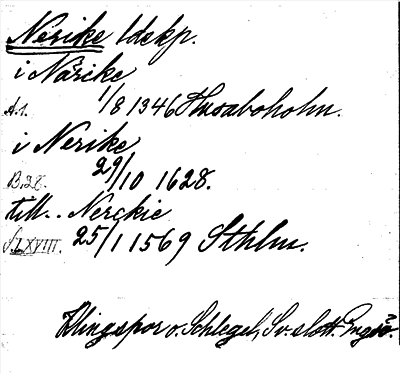 Nerike ldskp.
i Närike
A.1. 1/8 1346 Husaboholm.
i Nerike
B.28. 29/10 1628.
till.. Nerckie
S.LXVIII. 25/1 1569 Sthlm.
Klingspor o. Schlegel, Sv. slott. Engsö.